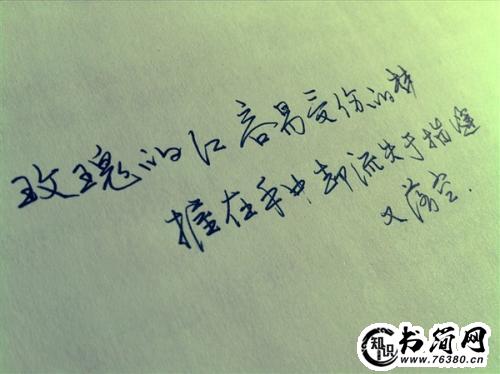 玫瑰的红容易受伤的梦
握在手中却流失于指缝
又落空.
知识
书简网
www.76380.cn